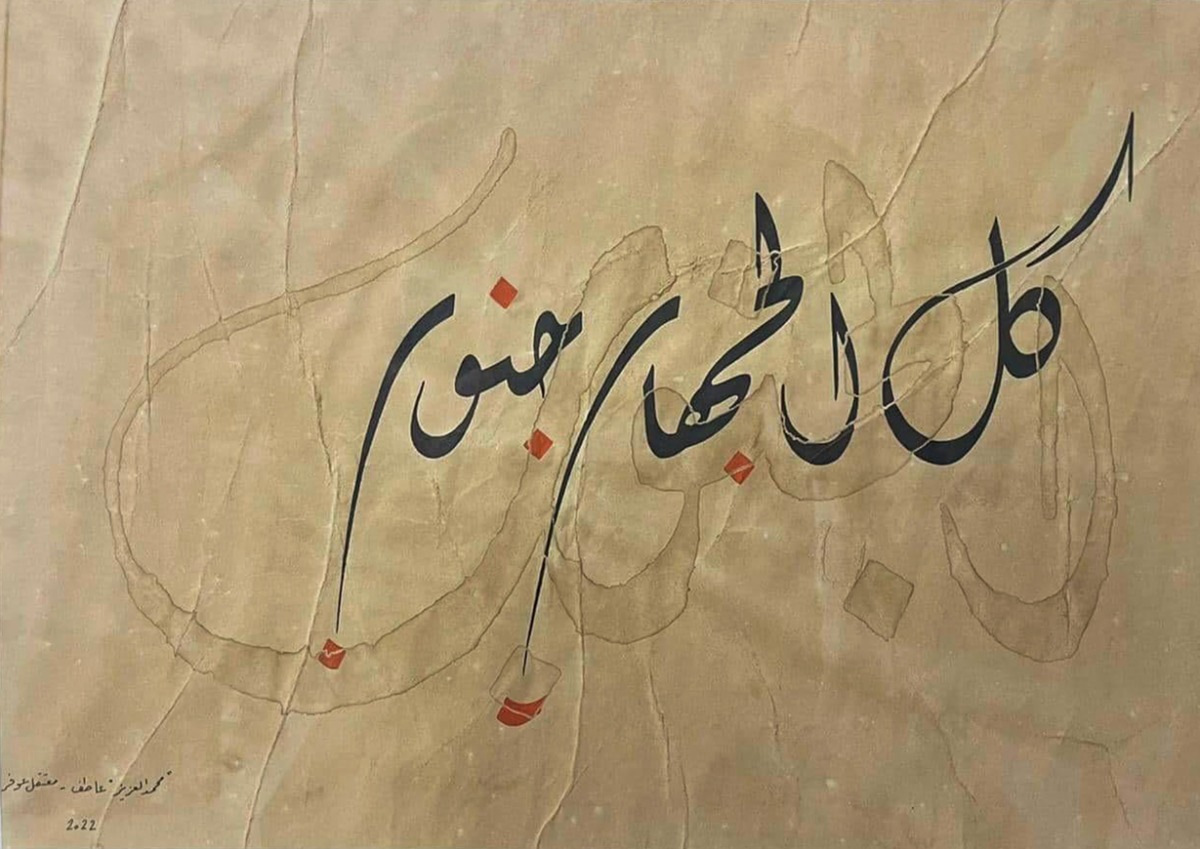 كل الجهات جنوب
الجنوب
"محمد العزيز" عاطف - معتقل عوفر
2022